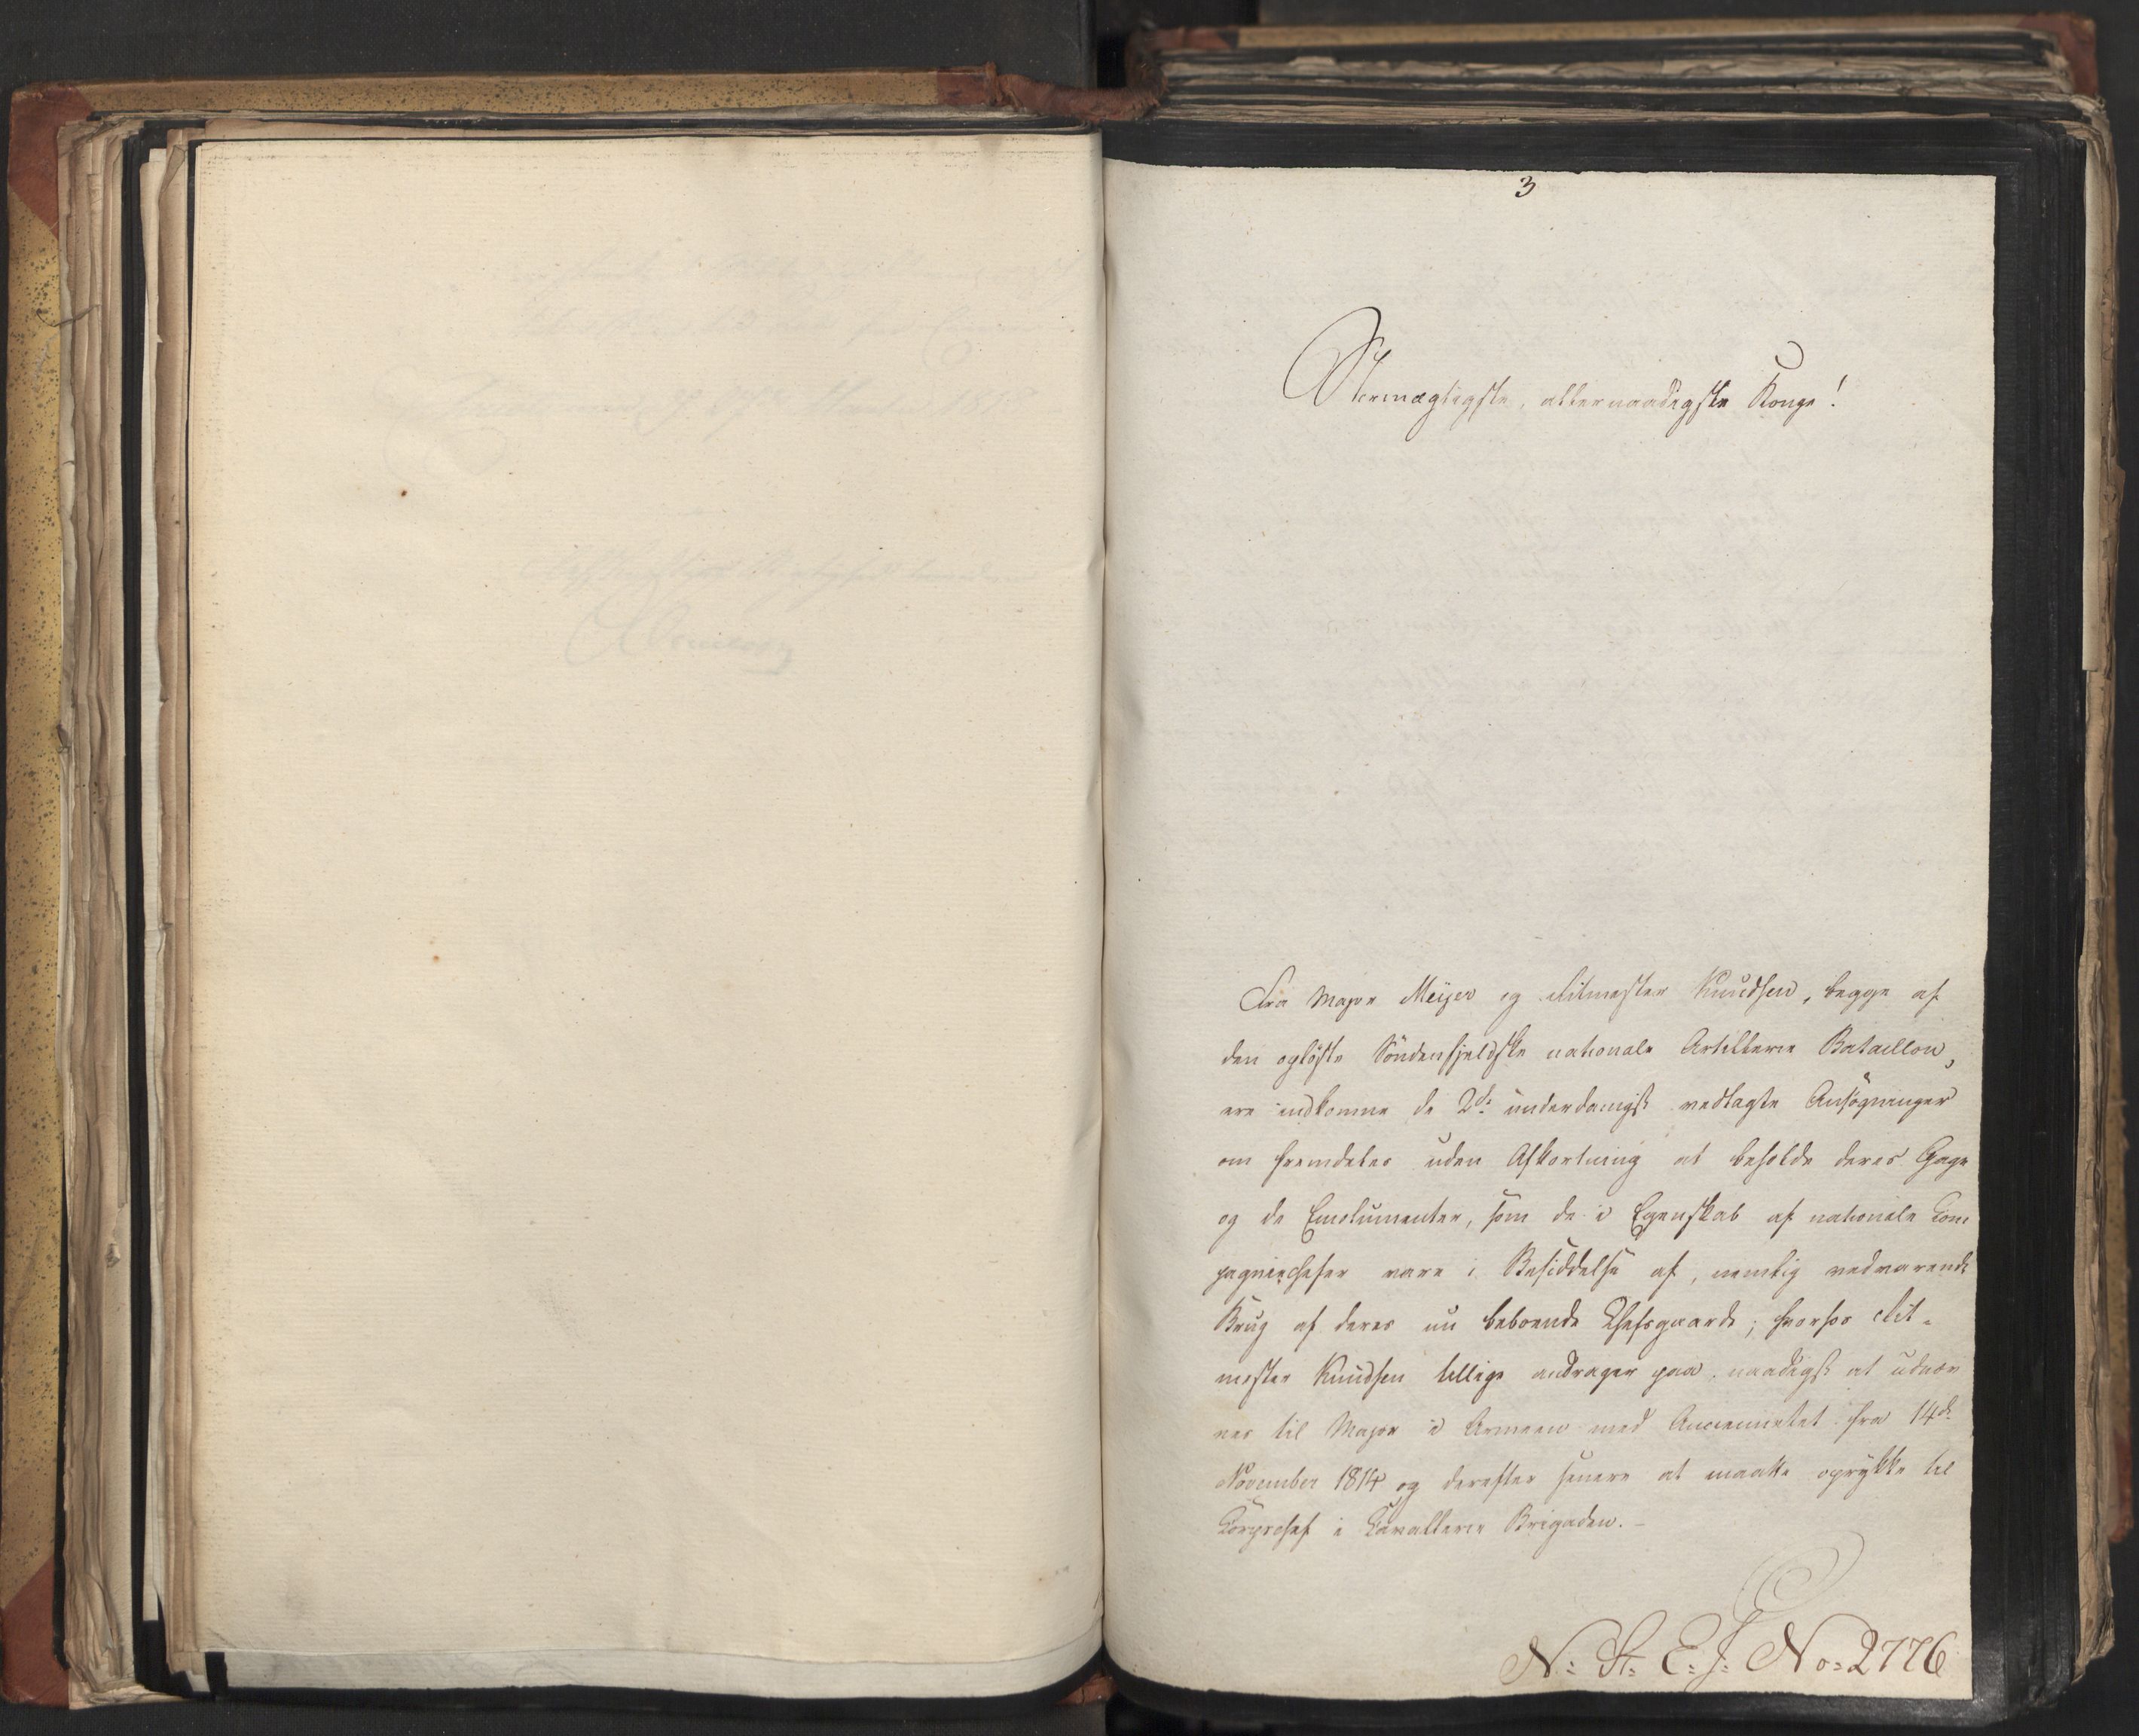 3
Stormægtigste, allernaadigste Konge!
Fra Major Meijer og Ritmester Knudsen, begge af
den opløste Søndenfjeldske nationale Artillerie Bataillon,
ere indkomne de 2de underdanigst vedlagte Ansøgninger
om fremdeles uden Afkortning at beholde deres Gage
og de Emolumenter, som de i Egenskab af nationale Com-
pagniechefer vare i Besiddelse af, nemlig vedvarende
Brug af deres nu beboende Chefsgaarde; hvorhos Rit-
mester Knudsen tillige andrager paa, naadigst at udnæv
nes til Major i Armeen med Anciennetet fra 14de
November 1814 og derefter senere at maatte oprykke til
Corpschef i Cavallerie Brigaden. -
N: St: E: J: No: 2776